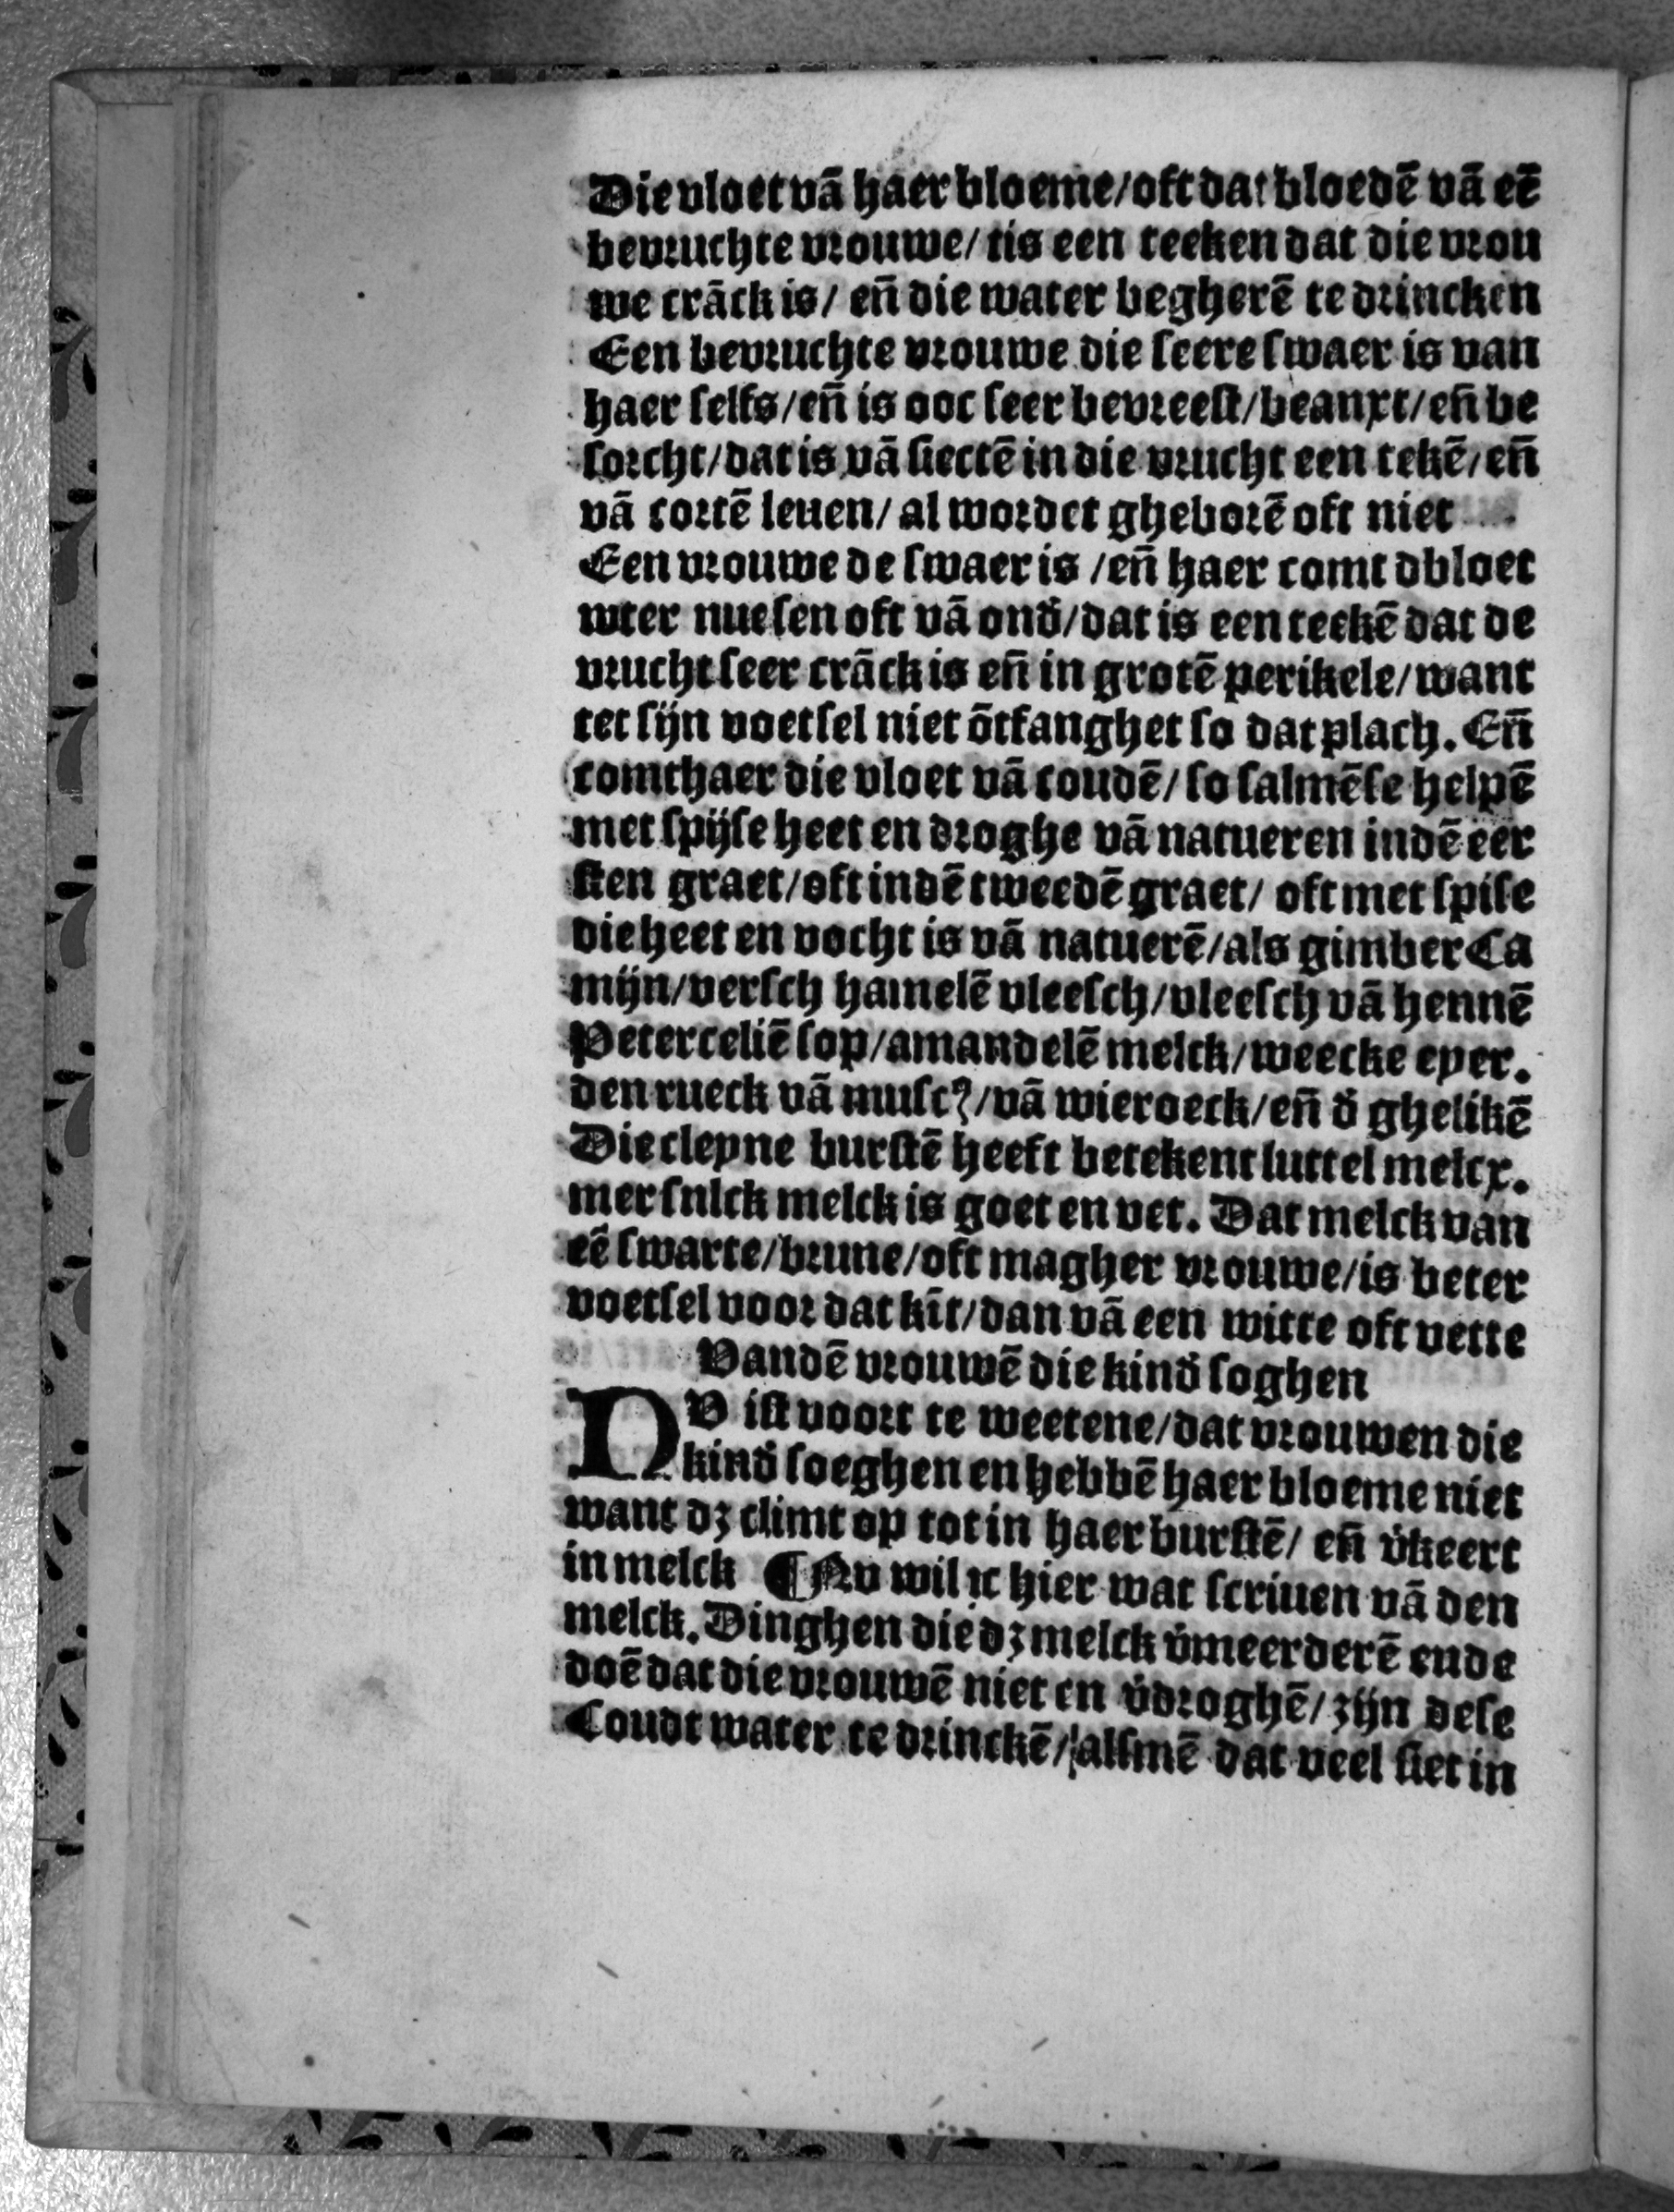 Die vloet vā haer bloeme/oft dat bloedē vā eē
bevruchte vrouwe/ tis een teeken dat die vrou
we crāck is/ en̄ die water begherē te drincken
Een bevruchte vrouwe die seere swaer is van
haer selfs/en̄ is ooc seer bevreest/beanxt/en̄ be
sorcht/dat is vā siectē in die vrucht een tekē/en̄
vā cortē leuen/ al wordet gheborē oft niet
Een vrouwe de swaer is /en̄ haer comt dbloet
wter nuesen oft vā onð/dat is een teekē dat de
vrucht seer crāck is en̄ in grotē perikele/want
tet sijn voetsel niet ōtfanghet so dat plach. En̄
comt haer die vloet vā coudē/ so salmēse helpē
met spijse heet en droghe vā natueren indē eer
sten graet/oft indē tweedē graet/ oft met spise
die heet en vocht is vā natuerē/als gimber Ca
mijn/versch hamelē vleesch/vleesch vā hennē
Petercelië sop/amandelē melck/weecke eyer.
den rueck vā musc?/vā wieroeck/en̄ ð ghelikē
Die cleyne burstē heeft betekent luttel melcx.
mer sulck melck is goet en vet. Dat melck van
eē swarte/brune/oft magher vrouwe/is beter
voetsel voor dat kīt/dan vā een witte oft vette
Vandē vrouwē die kinð soghen
NV ist voort te weetene/dat vrouwen die
kinð soeghen en hebbē haer bloeme niet
want dꝫ climt op tot in haer burstē/ en̄ v̄keert
in melck ¶Nv wil ic hier wat scriuen vā den
melck. Dinghen die dꝫ melck v̄meerderē ende
doē dat die vrouwē niet en v̄droghē/ zijn dese
Coudt water te drinckē/ alsmē dat veel siet in